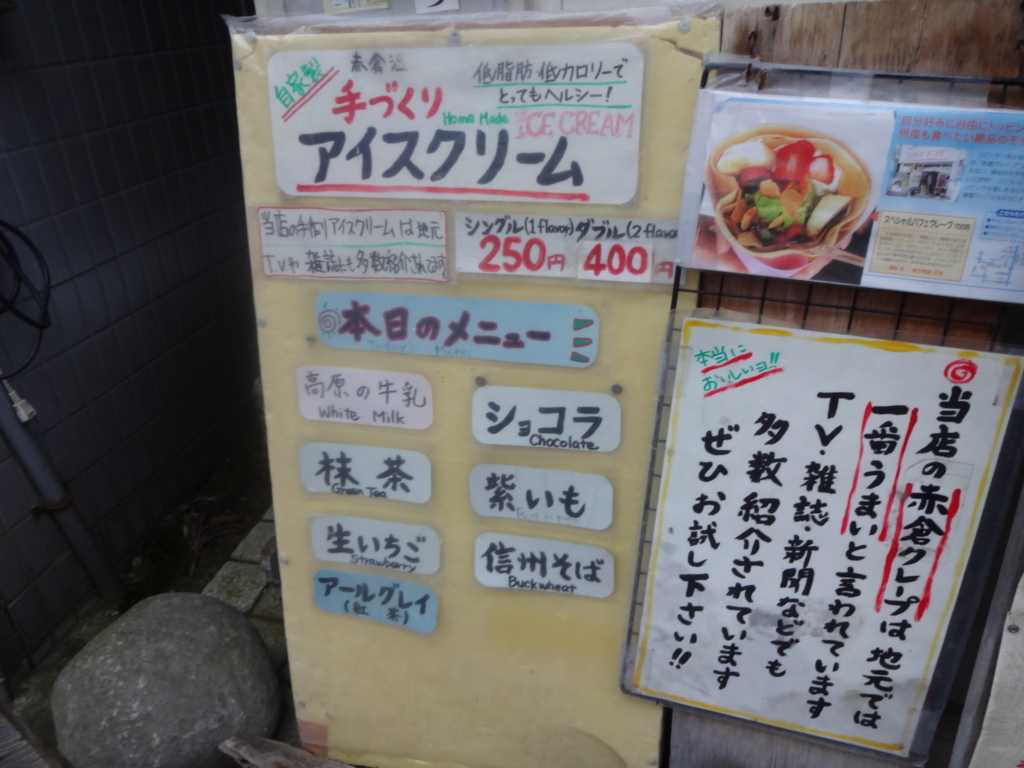 自家製
赤倉温
手づくり
Home Made
低脂肪 低カロリーで
とってもヘルシー!
ICE CREAM
アイスクリーム
当店の手作りアイスクリームは地元
TVや雑誌にも多数紹介
シングル(1 flavor)
250円
ダブル(2 flavor
400円
本日のメニュー
Today's Menu
高原の牛乳
White Milk
ショコラ
Chocolate
抹茶
Green Tea
紫いも
生いちご
Strawberry
信州そば
Buckwheat
アールグレイ
(紅茶)
自分好みに自由にトッピン
何度も食べたい絶品のそ
スペシャルパフェクレープ700円
本当に
おいしいヨ!!
当店の赤倉クレープは地元では
一番うまいと言われています
TV・雑誌・新聞などでも
多数紹介されています
ぜひお試し下さい!!